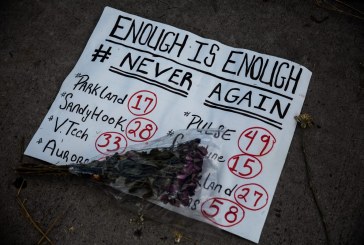 ENOUGH IS ENOUGH
# NEVER AGAIN
*PARKLAND 17
*SANDY HOOK 28
*V.TECH 33
*AURORA
*PULSE 49
15
27
58